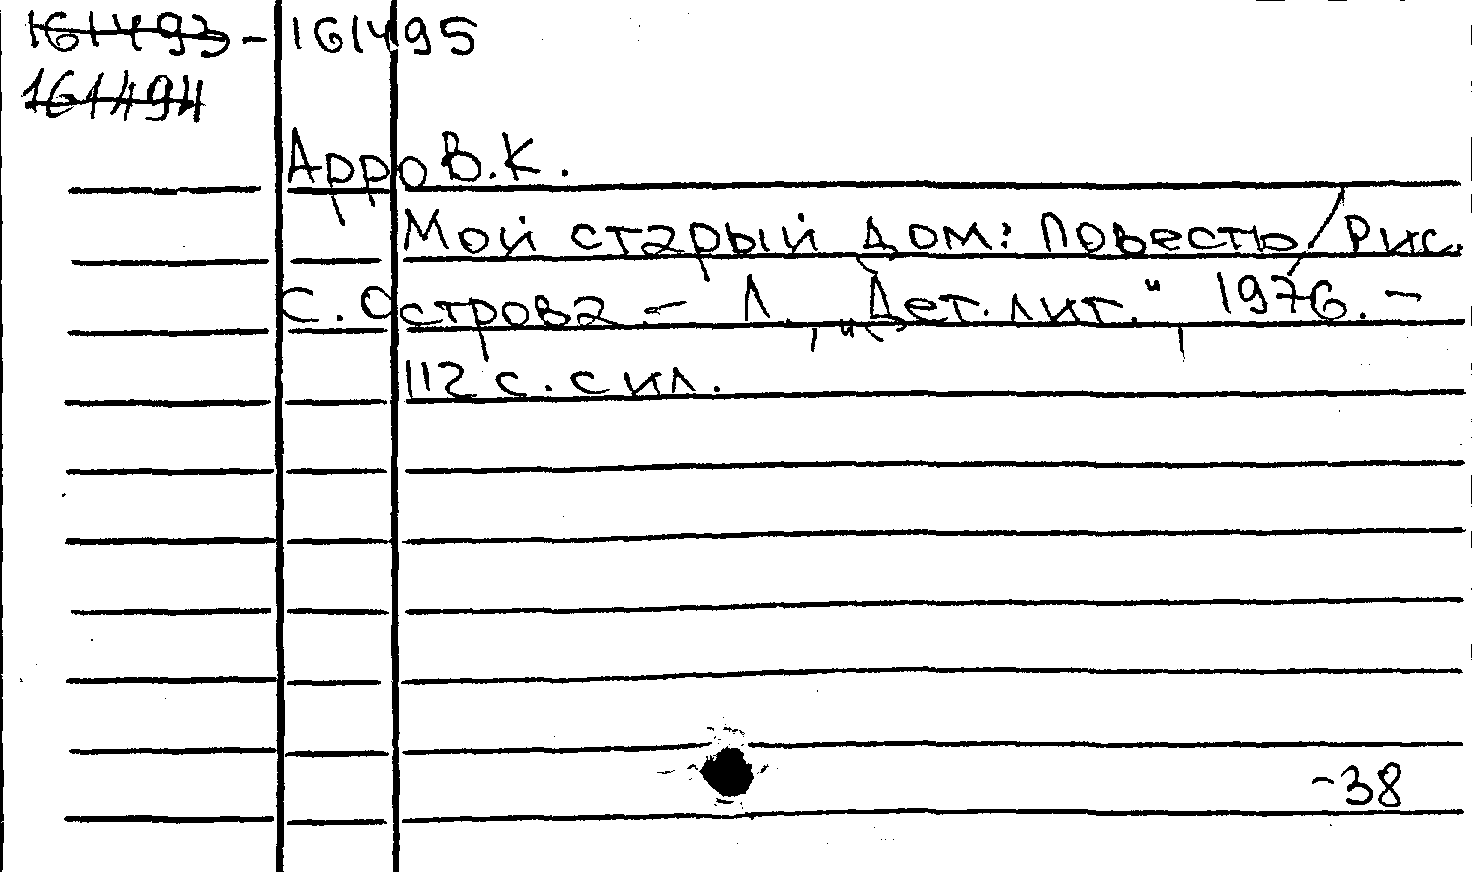 161493 - 161495
161494
Арро В.К.
Мой старый дом: Повесть / Рис.
С. Острова. - Л., „Дет. лит.", 1976. -
112 с. с ил.
-38